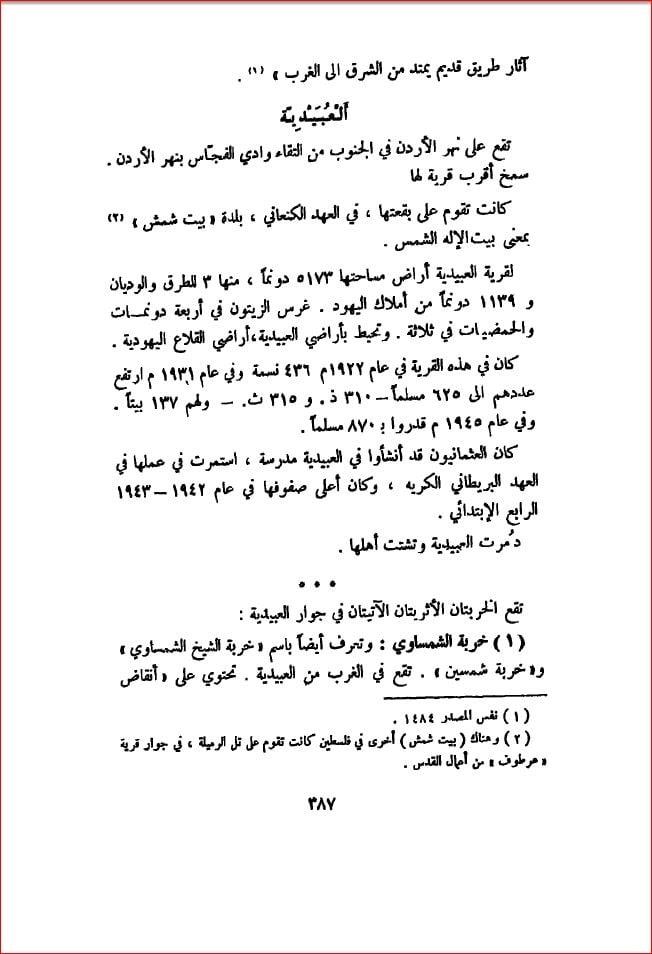 آثار طريق قديم يمتد من الشرق الى الغرب » (١) .
العُبَيْدِيّة
تقع على نهر الأردن في الجنوب من التقاء وادي الفجّاس بنهر الأردن .
سمخ أقرب قرية لها
كانت تقوم على بقعتها ، في العهد الكنعاني ، بلدة « بيت شمش » (٢)
بمعنى بيت الإله الشمس .
لقرية العبيدية أراض مساحتها ٥١٧٣ دونماً ، منها ٣ للطرق والوديان
و ١١٣٩ دونماً من أملاك اليهود . غرس الزيتون في أربعة دونمات
والحمضيات في ثلاثة . وتحيط بأراضي العبيدية، أراضي القلاع اليهودية .
كان في هذه القرية في عام ١٩٢٢م ٤٣٦ نسمة وفي عام ١٩٣١ م ارتفع
عددهم الى ٦٢٥ مسلماً – ٣١٠ ذ . و ٣١٥ ث. – ولهم ١٣٧ بيتاً .
وفي عام ١٩٤٥ م قدروا بـ ٨٧٠ مسلماً .
كان العثمانيون قد أنشأوا في العبيدية مدرسة ، استمرت في عملها في
العهد البريطاني الكريه ، وكان أعلى صفوفها في عام ١٩٤٢ – ١٩٤٣
الرابع الإبتدائي .
دُمرت العبيدية وتشتت أهلها .
• • •
تقع الخربتان الأثريتان الآتيتان في جوار العبيدية :
(١) خربة الشمساوي : وتعرف أيضاً باسم « خربة الشيخ الشمساوي »
و« خربة شمسين » . تقع في الغرب من العبيدية . تحتوي على « أنقاض
(١) نفس المصدر ١٤٨٤ .
(٢) وهناك ( بيت شمش ) أخرى في فلسطين كانت تقوم على تل الرميلة ، في جوار قرية
« عرطوف » من أعمال القدس .
٣٨٧